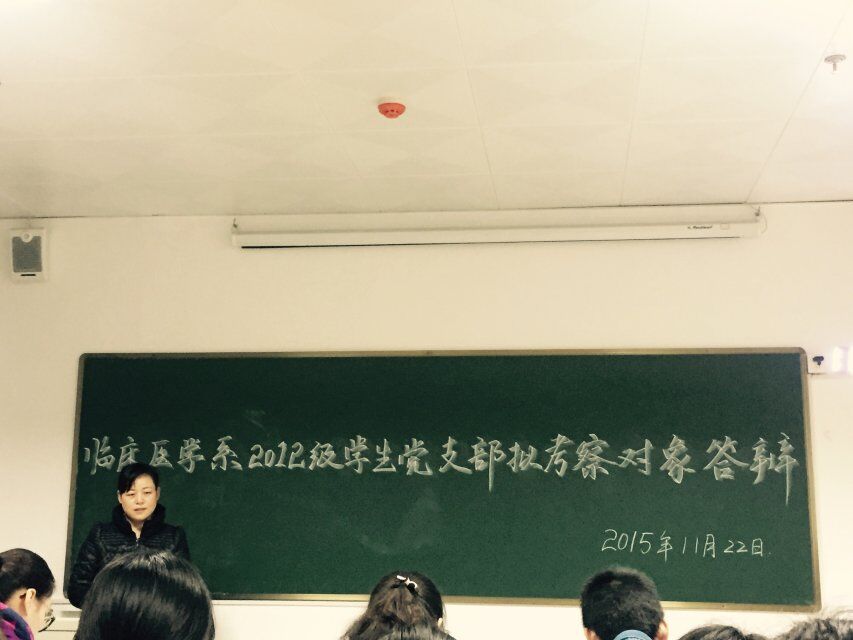 临床医学系2012级学生党支部拟考察对象答辩
2015年11月22日.